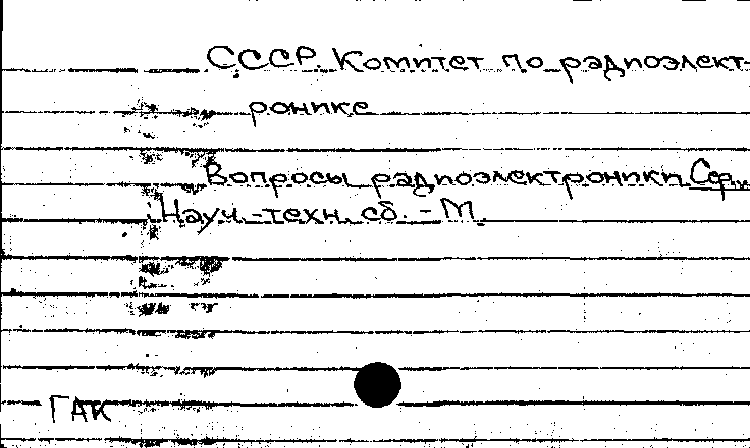 СССР. Комитет по радиоэлект-
ронике
Вопросы радиоэлектроники. Сер.
Науч.-техн. сб. - М.
ГАК